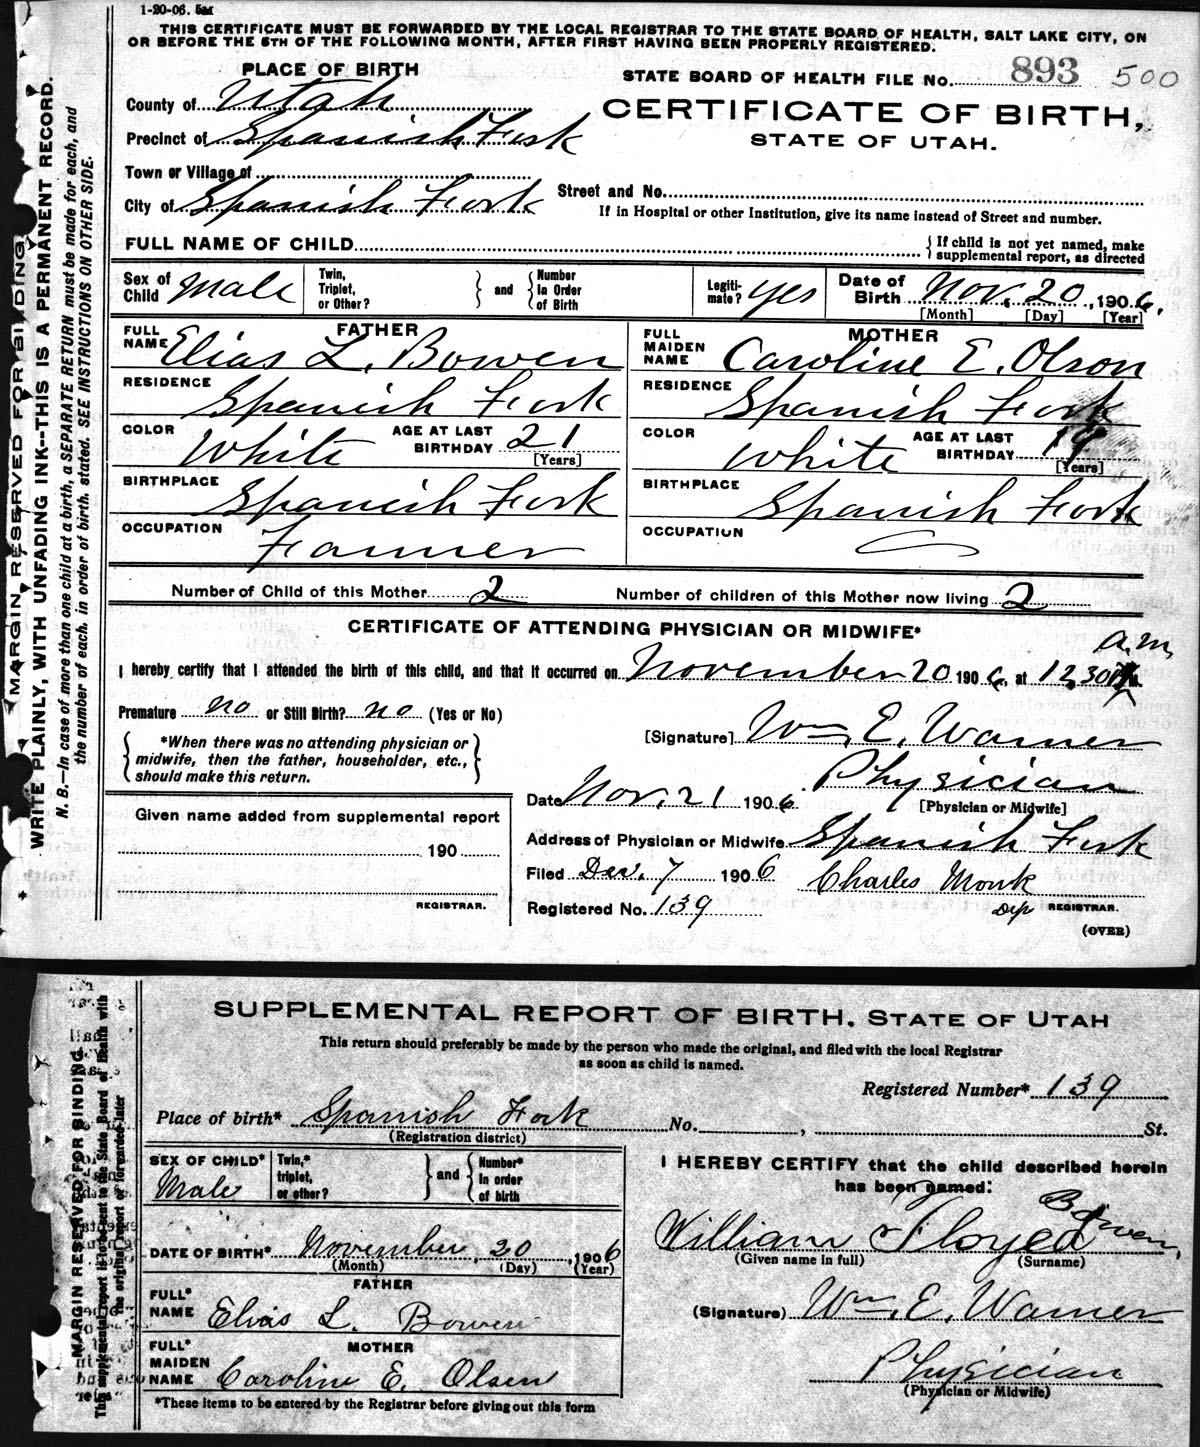 1-20-06. 5m
THIS CERTIFICATE MUST BE FORWARDED BY THE LOCAL REGISTRAR TO THE STATE BOARD OF HEALTH, SALT LAKE CITY, ON
OR BEFORE THE 5TH OF THE FOLLOWING MONTH, AFTER FIRST HAVING BEEN PROPERLY REGISTERED.
PLACE OF BIRTH
STATE BOARD OF HEALTH FILE No. 893 500
County of Utah
CERTIFICATE OF BIRTH,
Precinct of Spanish Fork
STATE OF UTAH.
Town or Village of
Street and No.
City of Spanish Fork
If in Hospital or other Institution, give its name instead of Street and number.
FULL NAME OF CHILD
{ If child is not yet named, make
supplemental report, as directed
Sex of Child Male
Twin, Triplet, or Other? } and { Number In Order of Birth
Legiti- mate? yes
Date of Birth Nov. 20, 1906.
[Month] [Day] [Year]
FATHER
FULL NAME Elias L. Bowen
RESIDENCE Spanish Fork
COLOR White AGE AT LAST BIRTHDAY 21
[Years]
BIRTHPLACE Spanish Fork
OCCUPATION Farmer
MOTHER
FULL MAIDEN NAME Caroline E. Olson
RESIDENCE Spanish Fork
COLOR White AGE AT LAST BIRTHDAY 19
[Years]
BIRTHPLACE Spanish Fork
OCCUPATION
Number of Child of this Mother 2 Number of children of this Mother now living 2
CERTIFICATE OF ATTENDING PHYSICIAN OR MIDWIFE*
a.m.
I hereby certify that I attended the birth of this child, and that it occurred on November 20 1906, at 12,30 M.
Premature no or Still Birth? no (Yes or No)
{ *When there was no attending physician or
midwife, then the father, householder, etc.,
should make this return. }
[Signature] Wm. E. Warner
Physician
[Physician or Midwife]
Date Nov. 21 1906.
Given name added from supplemental report
190
REGISTRAR.
Address of Physician or Midwife Spanish Fork
Filed Dec. 7 1906 Charles Monk
Registered No. 139 Dep REGISTRAR.
(OVER)
MARGIN RESERVED FOR BINDING
WRITE PLAINLY, WITH UNFADING INK--THIS IS A PERMANENT RECORD.
N. B.—In case of more than one child at a birth, a SEPARATE RETURN must be made for each, and
the number of each, in order of birth, stated. SEE INSTRUCTIONS ON OTHER SIDE.
SUPPLEMENTAL REPORT OF BIRTH, STATE OF UTAH
This return should preferably be made by the person who made the original, and filed with the local Registrar
as soon as child is named.
Registered Number* 139
Place of birth* Spanish Fork No. , St.
(Registration district)
SEX OF CHILD* Male
Twin,* triplet, or other? } and { Number* In order of birth
DATE OF BIRTH* November, 20, 1906
(Month) (Day) (Year)
FATHER
FULL* NAME Elias L. Bowen
MOTHER
FULL* MAIDEN NAME Caroline E. Olsen
*These items to be entered by the Registrar before giving out this form
I HEREBY CERTIFY that the child described herein
has been named:
William Floyed Bowen,
(Given name in full) (Surname)
(Signature) Wm. E. Warner
Physician
(Physician or Midwife)
MARGIN RESERVED FOR BINDING
This supplemental report is to be sent to the State Board of Health with
the original report or forwarded later